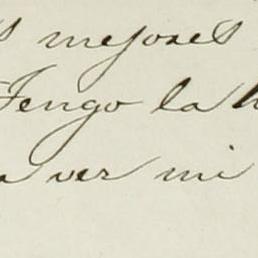 mejores
Tengo la
ver mi